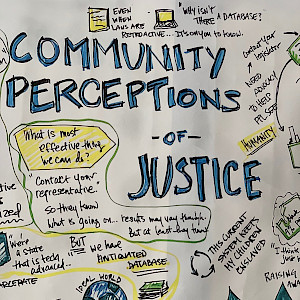 EVEN
WHEN
LAWS ARE
RETROACTIVE... IT'S ON YOU TO KNOW.
"WHY ISN'T
THERE A DATABASE?
Contact your
legislator
NEED
ADVOCACY
TO HELP
PPL SEE
HUMANITY
COMMUNITY
PERCEPTIONS
-OF-
JUSTICE
"What is most
effective thing
we can do?"
"Contact your
representative.
so they know
what is going on... results may vary though.
But at least buy time"
We're a state
that is tech
advanced...
BUT we have
ANTIQUATED
DATABASE
IDEAL WORLD
THIS CURRENT
SYSTEM KEEPS
MY CHILDREN
ENSLAVED
"I think
Just
RAISING